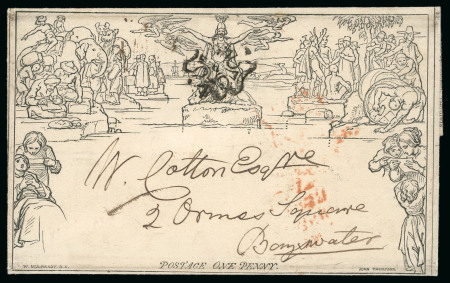 W. Cotton Esqre
2 Ormes Square
Bayswater
POSTAGE ONE PENNY.
W. MULREADY, R.A.
JOHN THOMPSON